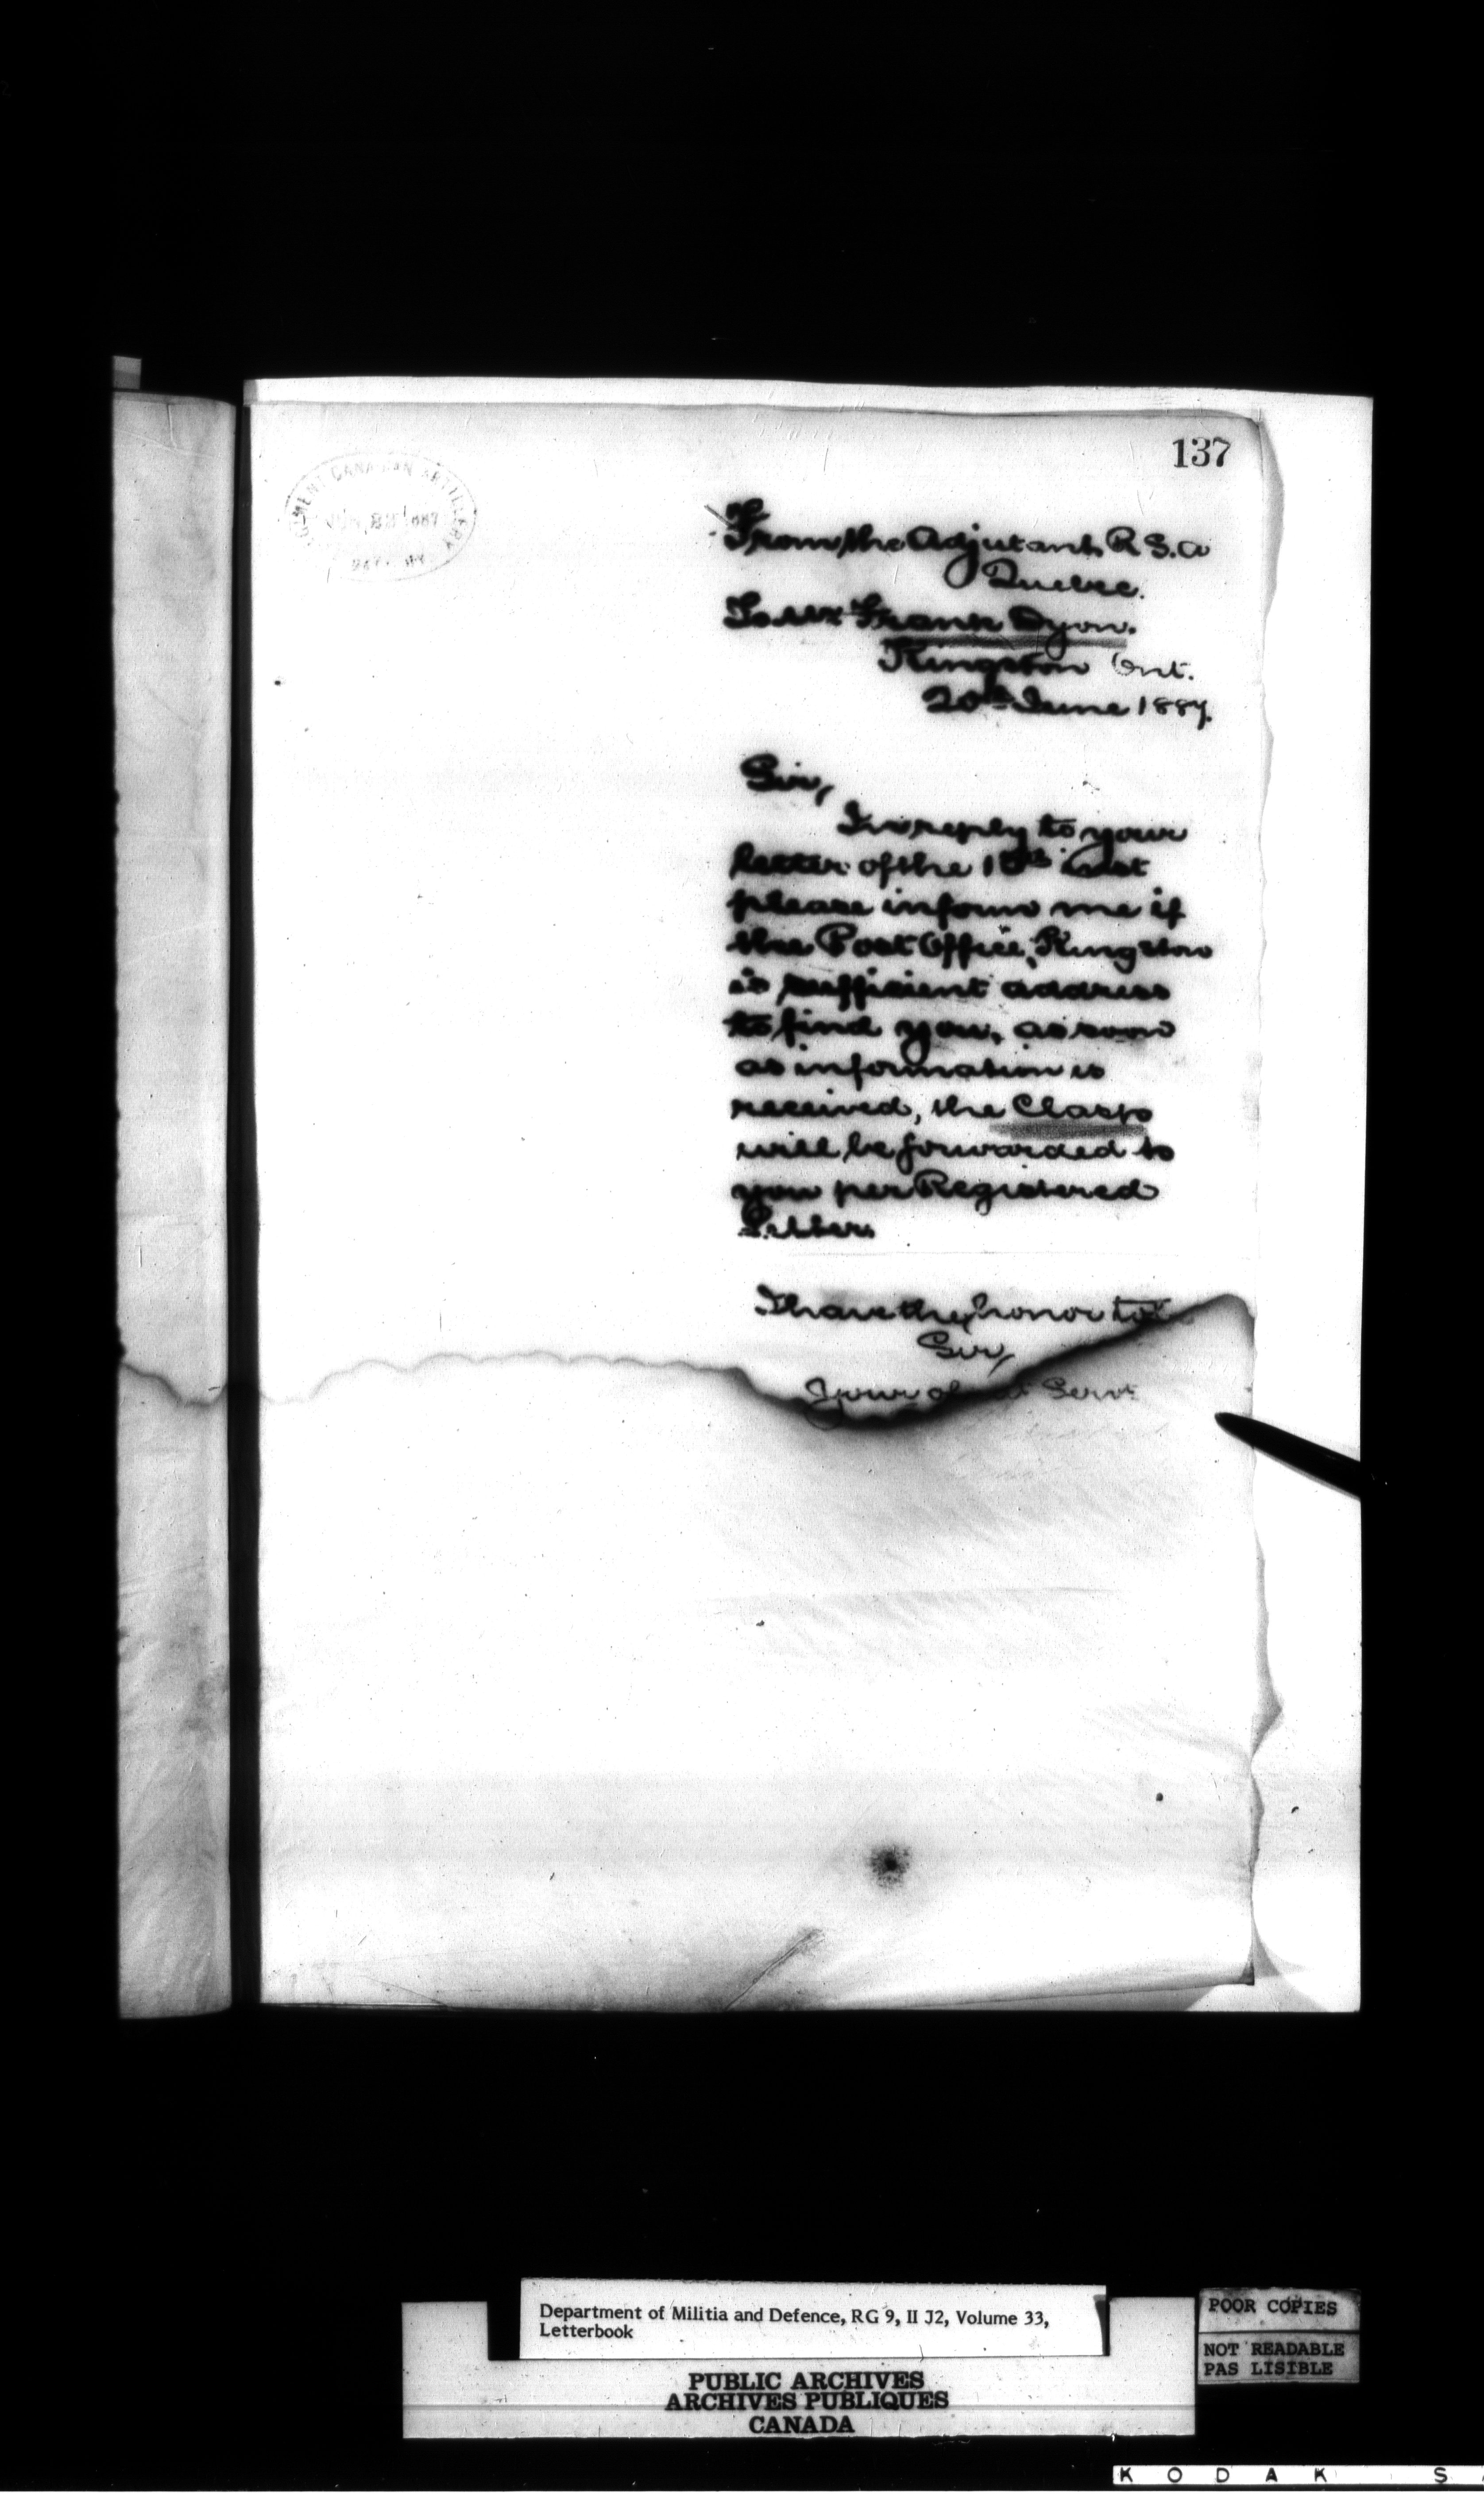 137
REGIMENT CANADIAN ARTILLERY
JUN 22 1887
From the Adjutant R.S.a
Quebec.
To Mr Frank Dyon.
Kingston Ont.
20th June 1887.
Sir,
In reply to your
letter of the 18th inst
please inform me if
the Post Office, Kingston
is sufficient address
to find you, as soon
as information is
received, the Clasp
will be forwarded to
you per Registered
Letter.
I have the honor to
Sir,
Your obt Servt
Department of Militia and Defence, RG 9, II J2, Volume 33,
Letterbook
PUBLIC ARCHIVES
ARCHIVES PUBLIQUES
CANADA
POOR COPIES
NOT READABLE
PAS LISIBLE
KODAK S